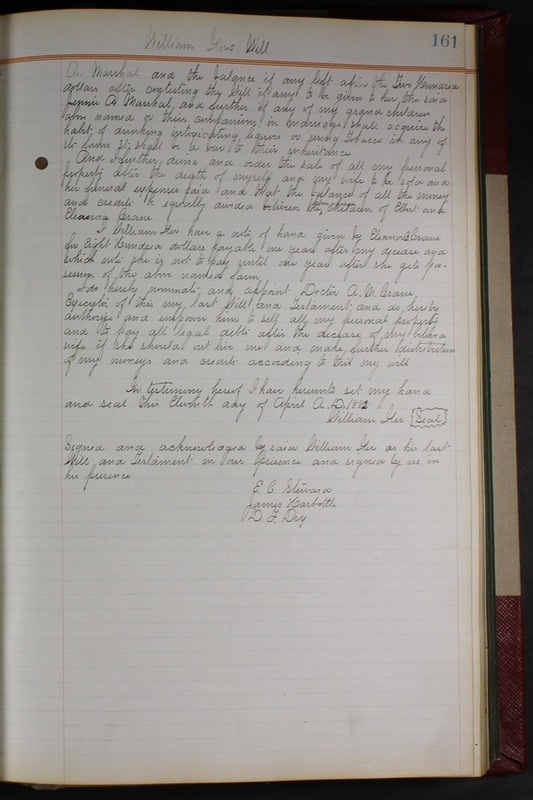 William Iers Will
161
A. Marshal and the balance if any left after the Two Hundred
dollars after contesting the Will is any to be given to her the said
Jennie A Marshal, and further if any of my grand children
above named or their companions in marriage shall acquire the
habit of drinking intoxicating liquors or using Tobacco in any of
its forms it shall be a bar to their inheritance
And I further devise and order the sale of all my personal
property after the death of myself and my wife to be sold and
her funeral expenses paid and that the balance of all the money
and credits be equally divided between the children of Elbert and
Eleanora Crane
I William Iler have a note of hand given by Eleanor Crane
for Eight Hundred dollars payable one year after my decease and
which note she is not to pay until one year after she gets pos-
session of the above named farm
I do hereby nominate and appoint Doctor A. V. Crane
Executor of this my last Will and Testament, and do hereby
authorize and empower him to sell all my personal property
and to pay all legal debts after the decease of my beloved
wife if she should out live me and make further distribution
of my moneys and credits according to this my will
In testimony hereof I have hereunto set my hand
and seal this Eleventh day of April A. D. 1882
William Iler Seal
Signed and acknowledged by said William Iler as his last
Will and Testament in our presence and signed by us in
his presence
E. C. Edwards
James Harbottle
D. F. Dry